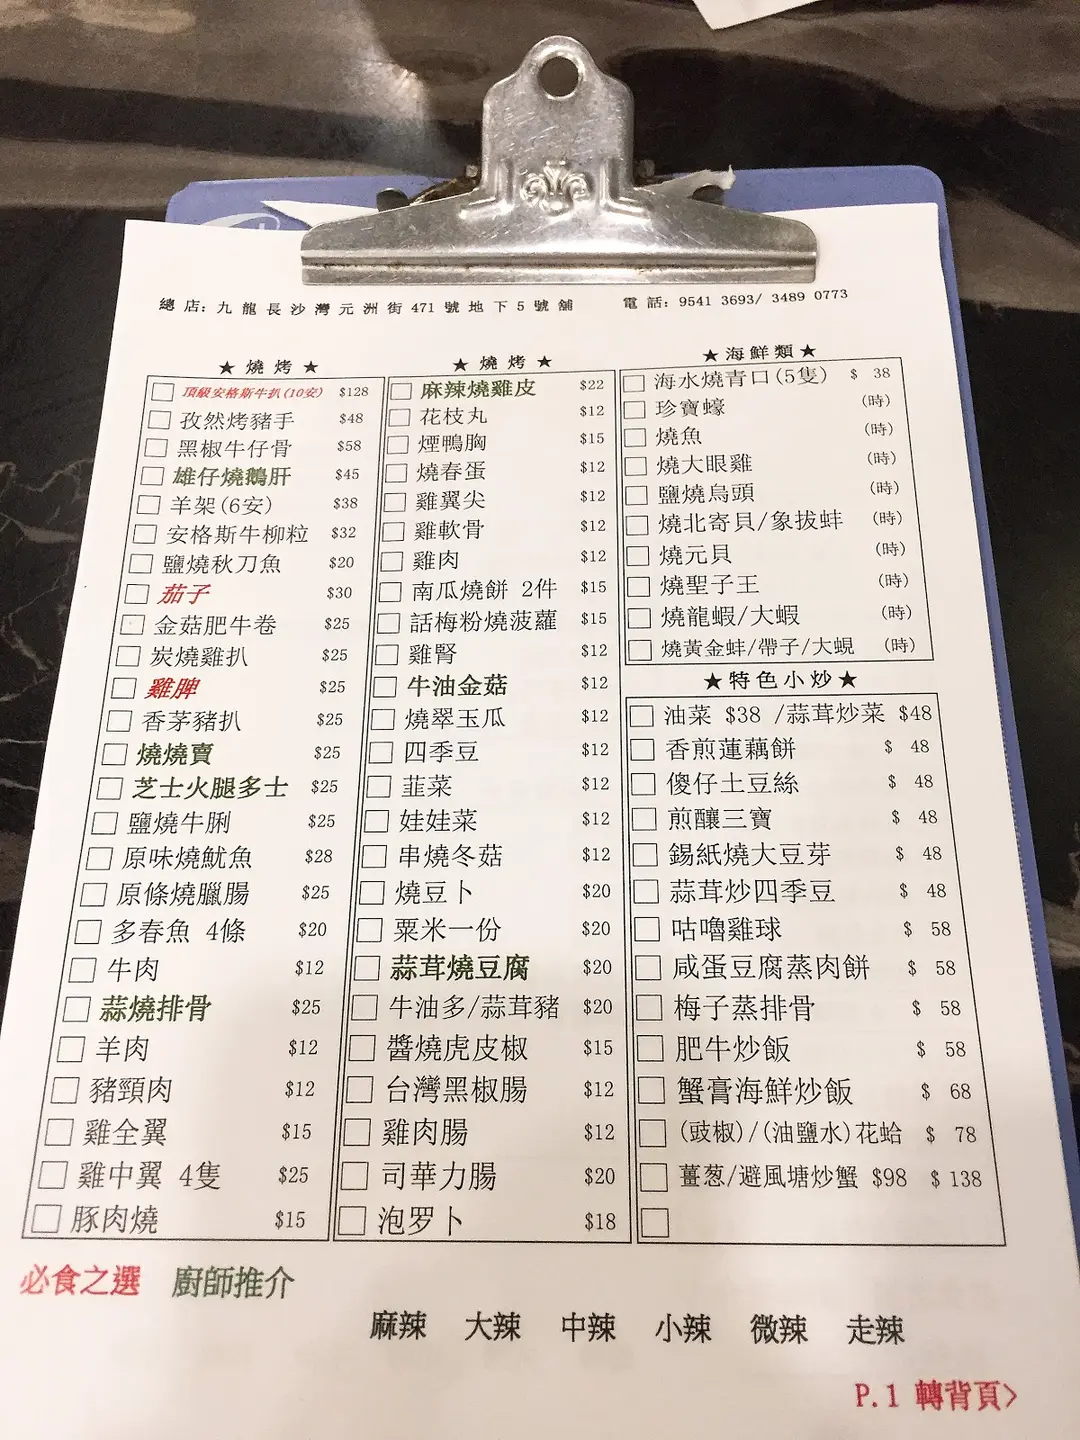 總店: 九龍長沙灣元洲街 471 號地下 5 號舖 電話: 9541 3693/ 3489 0773
★ 燒烤 ★
頂級安格斯牛扒(10安) $128
孜然烤豬手 $48
黑椒牛仔骨 $58
雄仔燒鵝肝 $45
羊架(6安) $38
安格斯牛柳粒 $32
鹽燒秋刀魚 $20
茄子 $30
金菇肥牛卷 $25
炭燒雞扒 $25
雞脾 $25
香茅豬扒 $25
燒燒賣 $25
芝士火腿多士 $25
鹽燒牛脷 $25
原味燒魷魚 $28
原條燒臘腸 $25
多春魚 4條 $20
牛肉 $12
蒜燒排骨 $25
羊肉 $12
豬頸肉 $12
雞全翼 $15
雞中翼 4隻 $25
豚肉燒 $15
★ 燒烤 ★
麻辣燒雞皮 $22
花枝丸 $12
煙鴨胸 $15
燒春蛋 $12
雞翼尖 $12
雞軟骨 $12
雞肉 $12
南瓜燒餅 2件 $15
話梅粉燒菠蘿 $15
雞腎 $12
牛油金菇 $12
燒翠玉瓜 $12
四季豆 $12
韮菜 $12
娃娃菜 $12
串燒冬菇 $12
燒豆卜 $20
粟米一份 $20
蒜茸燒豆腐 $20
牛油多/蒜茸豬 $20
醬燒虎皮椒 $15
台灣黑椒腸 $12
雞肉腸 $12
司華力腸 $20
泡罗卜 $18
★海鮮類★
海水燒青口(5隻) $ 38
珍寶蠔 (時)
燒魚 (時)
燒大眼雞 (時)
鹽燒烏頭 (時)
燒北寄貝/象拔蚌 (時)
燒元貝 (時)
燒聖子王 (時)
燒龍蝦/大蝦 (時)
燒黃金蚌/帶子/大蜆 (時)
★特色小炒★
油菜 $38 /蒜茸炒菜 $48
香煎蓮藕餅 $ 48
傻仔土豆絲 $ 48
煎釀三寶 $ 48
錫紙燒大豆芽 $ 48
蒜茸炒四季豆 $ 48
咕嚕雞球 $ 58
咸蛋豆腐蒸肉餅 $ 58
梅子蒸排骨 $ 58
肥牛炒飯 $ 58
蟹膏海鮮炒飯 $ 68
(豉椒)/(油鹽水)花蛤 $ 78
薑葱/避風塘炒蟹 $98 $ 138
必食之選 廚師推介
麻辣 大辣 中辣 小辣 微辣 走辣
P.1 轉背頁>